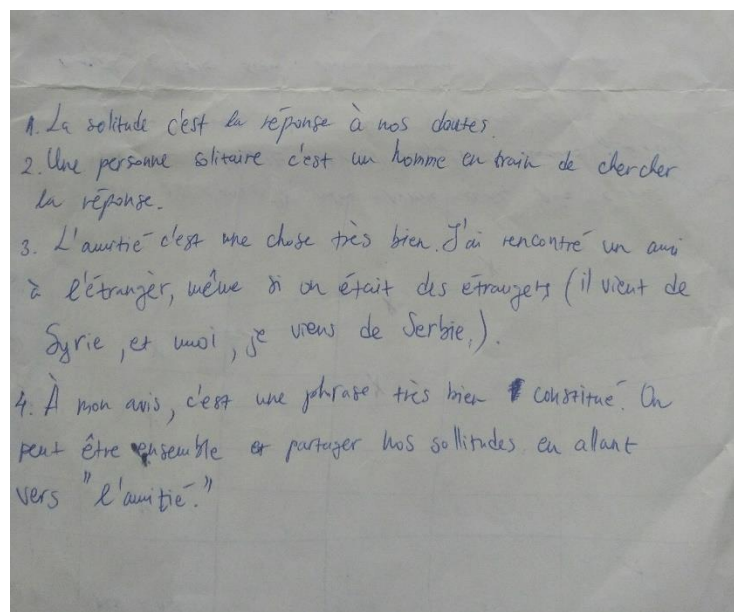 1. La solitude c'est la réponse à nos doutes.
2. Une personne solitaire c'est un homme en train de chercher
la réponse.
3. L'amitié c'est une chose très bien. J'ai rencontré un ami
à l'étrangèr, même si on était des étrangers (il vient de
Syrie, et moi, je viens de Serbie,).
4. À mon avis, c'est une phrase très bien constitué. On
peut être ensemble et partager nos sollitudes en allant
vers "l'amitié."